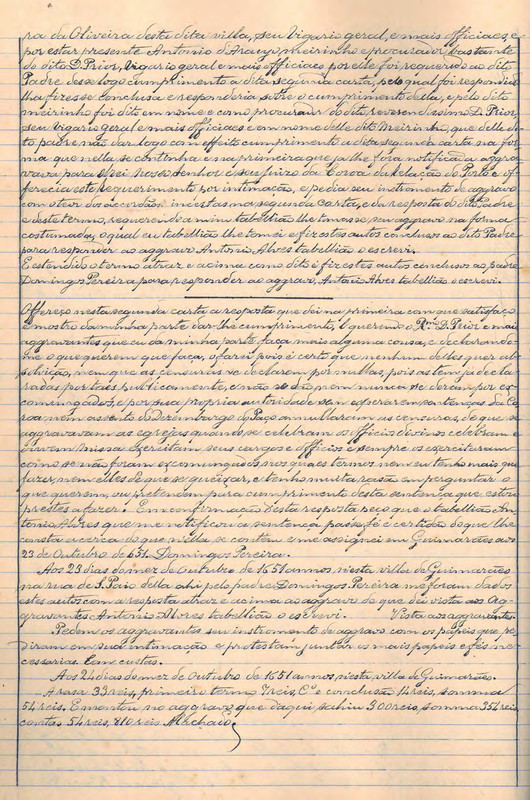 ra da Oliveira desta dita villa, seu Vigario geral, e mais officiaes, e
por estar presente Antonio d'Araujo, meirinho e procurador bastante
do dito D. Prior, Vigario geral e mais officiaes por elle foi requerido ao dito
Padre desse logo cumprimento á dita segunda carta, pelo qual foi respondido
lha fizesse conclusa e responderia sobre o cumprimento della, e pelo dito
meirinho foi dito em nome e como procurador do dito reverendissimo D. Prior,
seu Vigario geral e mais officiaes e em nome delle dito Meirinho, que delle di-
to padre não dar logo com effeito cumprimento a dita segunda carta na for-
ma que nella se continha e na primeira que ja lhe fora notificada aggra-
vava para el rei nosso senhor e seu juizo da Coroa da Relação do Porto e of-
ferecia este requerimento por intimação, e pedia seu instromento de aggravo
com o teor dos accordãos insertos na segunda carta, e da resposta do dito Padre
e deste termo, requerendo a mim tabellião lhe tomasse seu aggravo na forma
costumada, o qual eu tabellião lhe tomei e fiz estes autos conclusos ao dito Padre
para responder ao aggravo Antonio Alves tabellião o escrevi.
E estendido o termo atraz e acima como dito é fiz estes autos conclusos ao padre
Domingos Pereira para responder ao aggravo, Antonio Alves tabellião o escrevi.
Offereço nesta segunda carta a resposta que dei na primeira com que satisfaço
e mostro da minha parte dar-lhe cumprimento, e querendo o Rmo D. Prior e mais
aggravantes que eu da minha parte faça mais alguma cousa, e declarando-
me o que querem que faça, o farei pois é certo que nenhum delles quer ab-
solvição, nem que as censuras se declarem por nullas, pois as tem ja decla-
radas por taes publicamente, e não se dão, nem nunca se deram por es-
comungados, e por sua propria autoridade sem esperarem sentenças da Co-
roa, nem assento do Dezembargo do Paço annullarem as censuras, de que se
aggravavam as egrejas quando se celebram os officios divinos celebram e
ouvem missa exercitam seus cargos e officios e sempre os exercitaram
como se não foram excomungados nos quaes termos nem eu tenho mais que
fazer, nem elles de que se queixar, e tenho muita rasão em perguntar o
que querem, ou pretendem para cumprimento desta sentença que estou
prestes a fazer. Em confirmação desta resposta peço que o tabellião An-
tonio Alvres que me notificou a sentença passe fé e certidão do que lhe
consta acerca do que nella se contem e me assignei em Guimarães aos
23 de Outubro de 651. Domingos Pereira.
Aos 23 dias do mez de outubro de 1651 annos nesta villa de Guimarães
na rua de S. Paio della ahi pelo padre Domingos Pereira me foram dados
estes autos com a resposta atraz e acima ao aggravo de que dei vista aos Ag-
gravantes Antonio Alvres tabellião o escrevi. Vista aos aggravantes.
Pedem os aggravantes seu instromento de aggravo com os papeis que pe-
diram em sua intimação e protestam juntar os mais papeis e fés ne-
cessarias. Com custas.
Aos 24 dias do mez de Outubro de 1651 annos nesta villa de Guimarães.
A rasa 33 reis, primeiro termo 7 reis, Co e conclusão 14 reis, somma
54 reis. E montou no aggravo que daqui sahiu 300 reis, somma 354 reis
contas 54 reis. 410 reis Machado